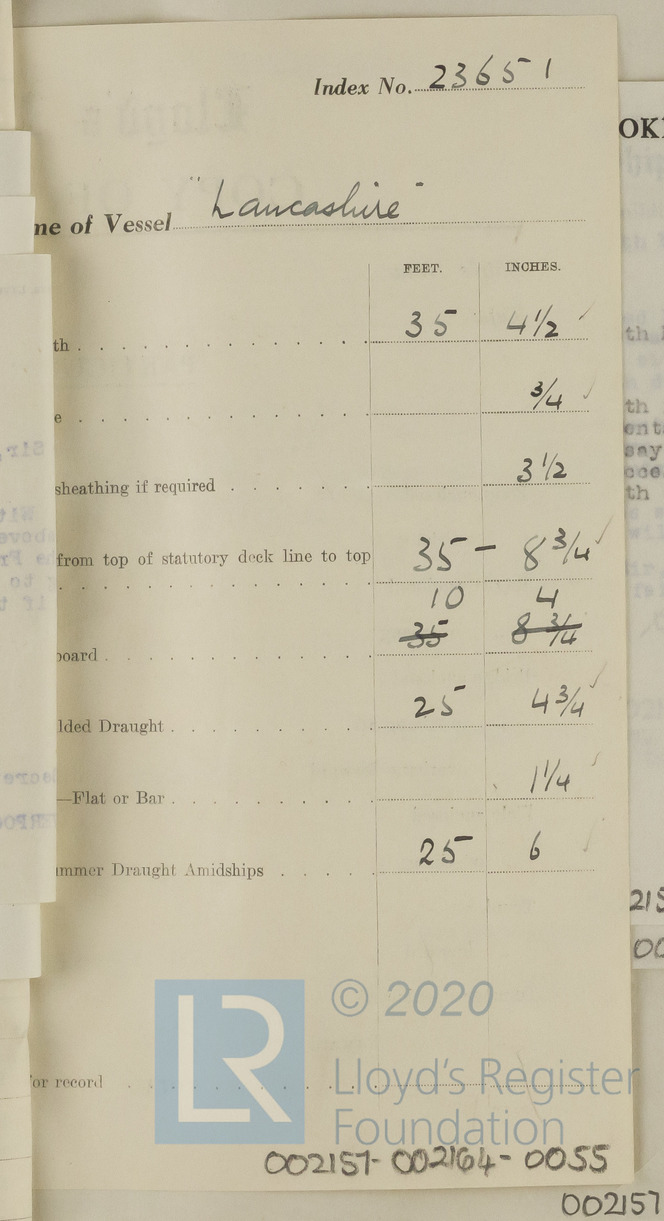 Index No. 23651
me of Vessel "Lancashire"
FEET. INCHES.
th . . . 35 4½
e . . . ¾
sheathing if required . . . 3½
from top of statutory deck line to top 35 - 8¾
10 4
board . . . 35 8¾
lded Draught . . . 25 4¾
—Flat or Bar . . . 1¼
ummer Draught Amidships . . . 25 6
or record . . .
LR
© 2020
Lloyd's Register
Foundation
002157-002164-0055
002157
OKE
th
th
say
th
215
00
Sir,